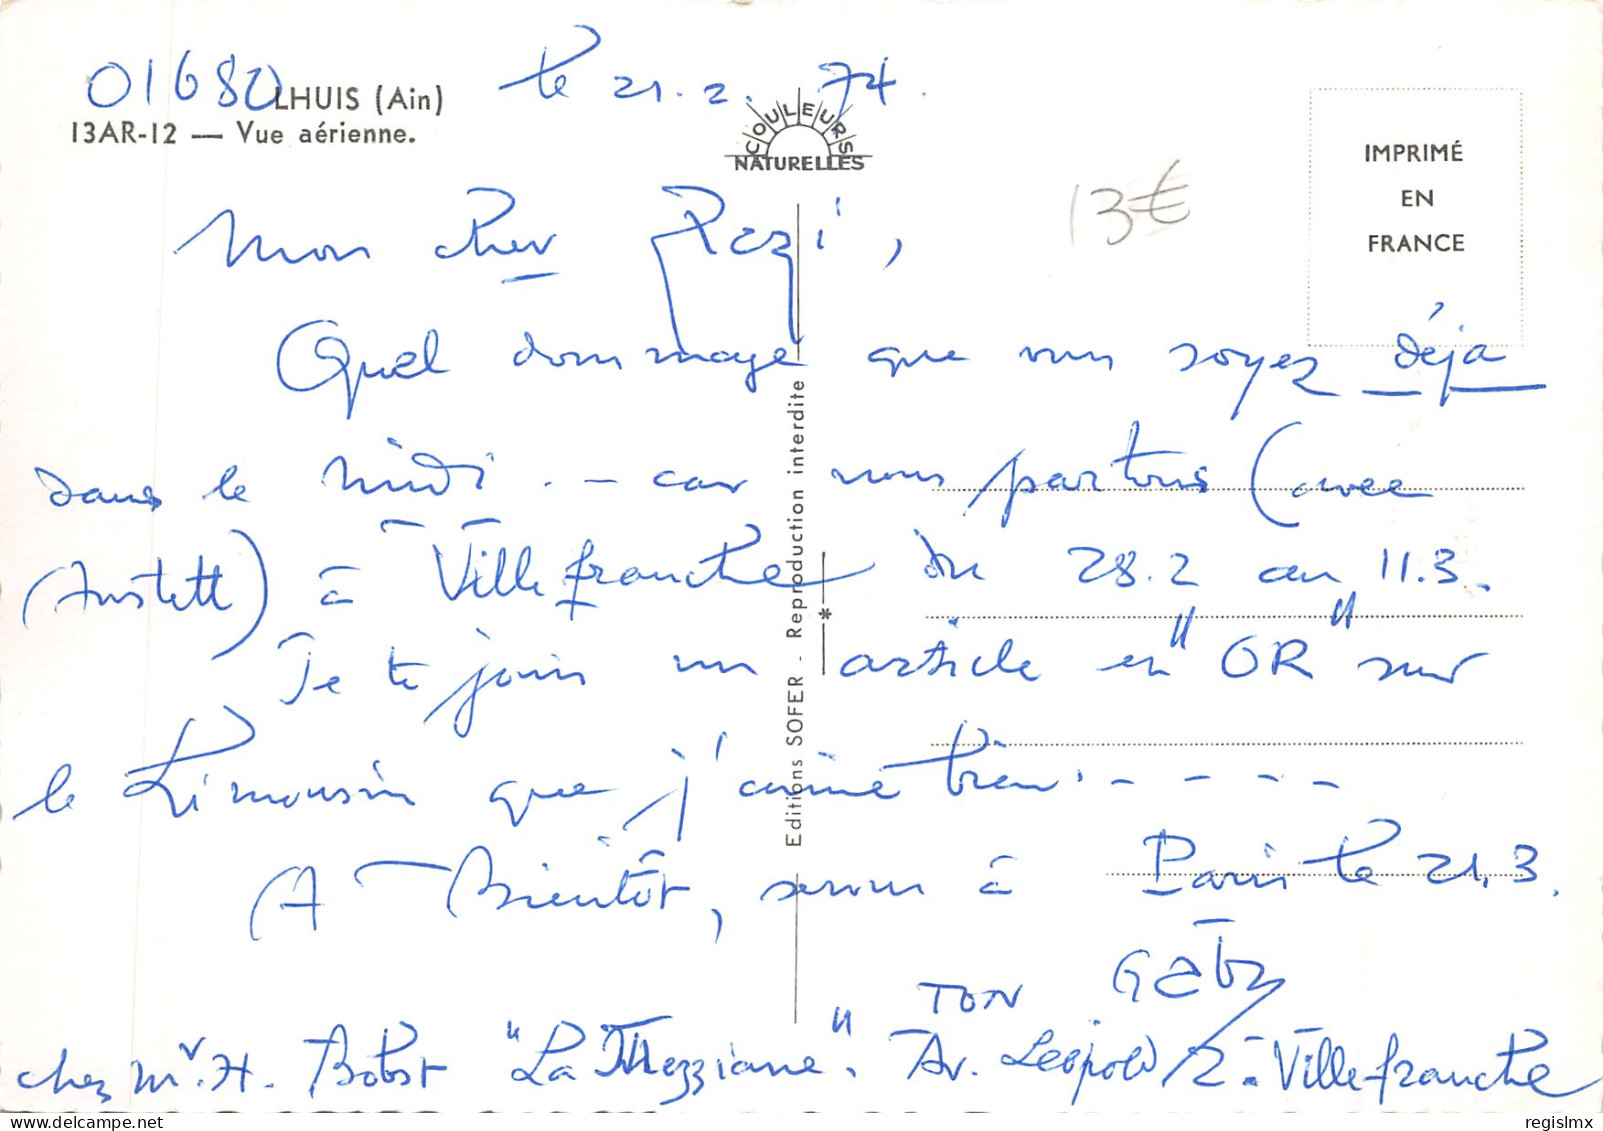 01680 LHUIS (Ain)
13AR-12 — Vue aérienne.
le 21.2.74.
COULEURS
NATURELLES
IMPRIMÉ
EN
FRANCE
13€
Mon cher Rezi,
Quel dommage que vous soyez déjà
dans le midi .- car nous partons (avec
Austett) à Villefranche du 28.2 au 11.3.
Je te joins un article en "OR" sur
le Limousin que j'aime bien . - - - -
A Bientôt, serons à Paris le 21.3.
TON Gaby
chez Mr. H. Bobst "La Mezziane". Av. Léopold 2 - Villefranche
Editions SOFER - Reproduction interdite
regislmx